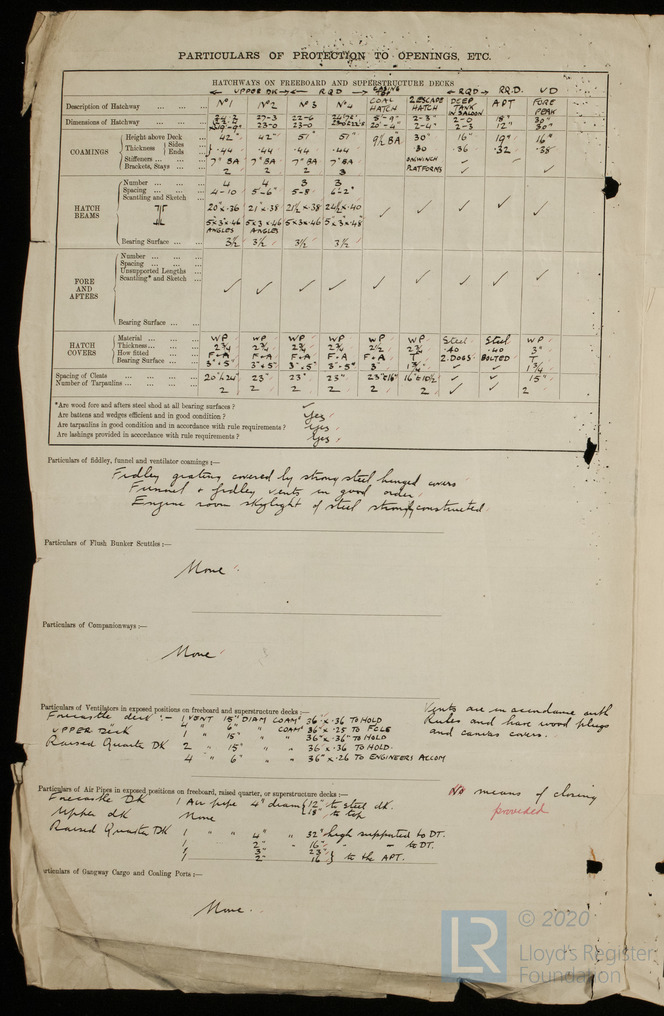 PARTICULARS OF PROTECTION TO OPENINGS, ETC.
HATCHWAYS ON FREEBOARD AND SUPERSTRUCTURE DECKS
← UPPER DK → ← RQD → CASING TOP ← RQD → RQD. UD
Description of Hatchway ... ... ... No 1 No 2 No 3 No 4 COAL HATCH 2 ESCAPE HATCH DEEP TANK IN SALOON APT FORE PEAK
Dimensions of Hatchway ... ... ... 27-3 23-0 22-6 23-0 5'-9" 20'-4" 2-3" 2-4" 2-0 2-3 18" 12" 30" 30"
COAMINGS
Height above Deck ... 42" 42" 51" 51" 9½ BA 30" 16" 19" 16"
Thickness Sides Ends .44 .44 .44 .44 30 .36 .32 .38
Stiffeners ... ... ... 7" BA 7" BA 7" BA 7" BA ON WINCH
Brackets, Stays ... ... 2 2 2 3 PLATFORMS
HATCH BEAMS
Number ... ... ... 4 4 3 3
Spacing ... ... ... 4-10 5-6" 5-8 6-2"
Scantling and Sketch
20" x .36 21" x .38 21½ x .38 24½ x .40
5 x 3 x .46 5 x 3 x .46 5 x 3 x .46 5" x 3" x .48
ANGLES ANGLES
Bearing Surface ... ... 3½ 3½ 3½ 3½
FORE AND AFTERS
Number ... ... ...
Spacing ... ... ...
Unsupported Lengths
Scantling* and Sketch
Bearing Surface ... ...
HATCH COVERS
Material ... ... ... WP WP WP WP WP WP Steel Steel WP
Thickness ... ... ... 2¾ 2¾ 2¾ 2¾ 2½ 2¾ .40 .40 3"
How fitted ... ... F+A F+A F+A F+A F+A T 2.DOGS BOLTED T
Bearing Surface ... ... 3"+5" 3"+5" 3"+5" 3"+5" 3" 1¾ 1¾
Spacing of Cleats ... ... ... ... 20" & 24" 23" 23" 23" 23" & 16" 16" & 10½ 15"
Number of Tarpaulins ... ... ... ... 2 2 2 2 2 2 2
*Are wood fore and afters steel shod at all bearing surfaces?
Are battens and wedges efficient and in good condition? Yes
Are tarpaulins in good condition and in accordance with rule requirements? Yes
Are lashings provided in accordance with rule requirements? Yes
Particulars of fiddley, funnel and ventilator coamings:—
Fidley grating covered by strong steel hinged covers
Funnel & fidley vents in good order
Engine room skylight of steel strongly constructed
Particulars of Flush Bunker Scuttles:—
None
Particulars of Companionways:—
None
Particulars of Ventilators in exposed positions on freeboard and superstructure decks:—
Forecastle deck:- 1 VENT 15" DIAM COAM 36" x .36 TO HOLD
4 " 6" " COAM 36" x .25 TO FCLE
UPPER DECK 1 " 15" " " 36" x .36" TO HOLD
Raised Quarter DK 2 " 15" " " 36 x .36 TO HOLD.
4 " 6" " " 36" x .26 TO ENGINEERS ACCOM
Vents are in accordance with
Rules and have wood plugs
and canvas covers.
Particulars of Air Pipes in exposed positions on freeboard, raised quarter, or superstructure decks:—
Forecastle DK 1 Air pipe 4" diam { 12" to steel dk.
18" to top
Upper dk None
Raised Quarter DK 1 " " 4" " 32" high supported to DT.
1 2" " 16" " " to DT.
1 3" 23" } to the APT.
1 2" 16
No means of closing
provided
Particulars of Gangway Cargo and Coaling Ports:—
None.
LR © 2020
Lloyd's Register
Foundation